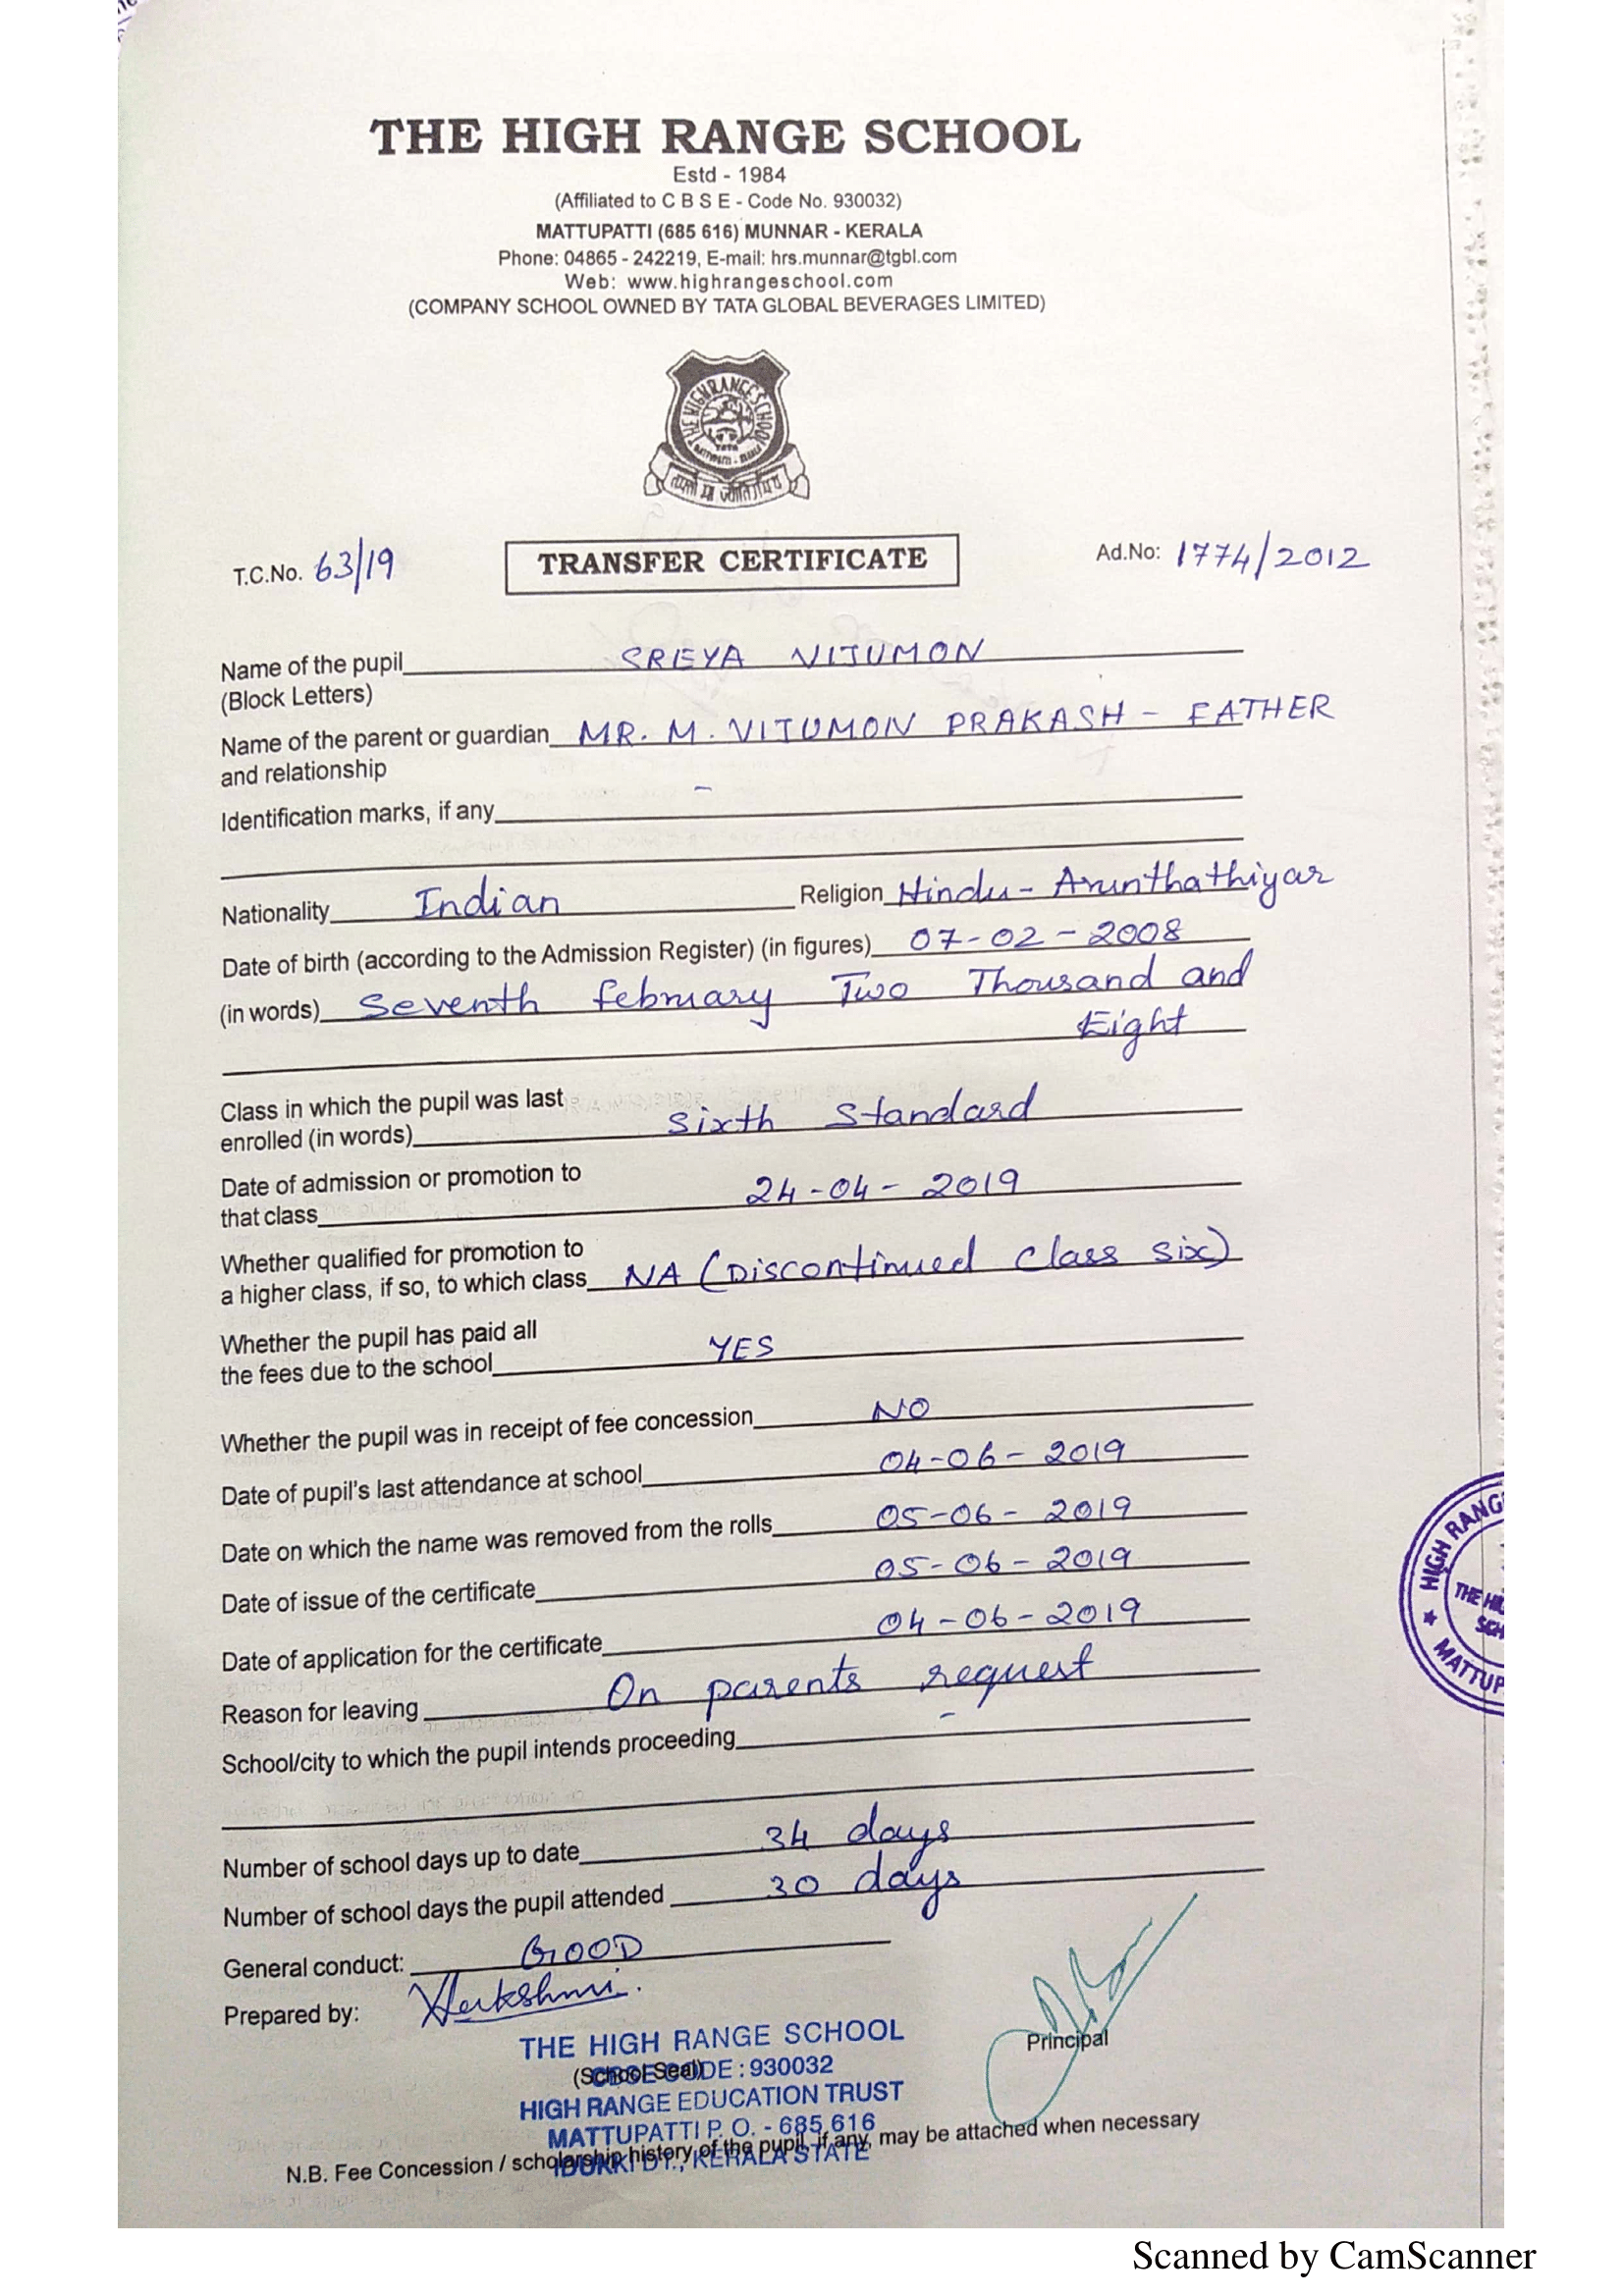 THE HIGH RANGE SCHOOL
Estd - 1984
(Affiliated to C B S E - Code No. 930032)
MATTUPATTI (685 616) MUNNAR - KERALA
Phone: 04865 - 242219, E-mail: hrs.munnar@tgbl.com
Web: www.highrangeschool.com
(COMPANY SCHOOL OWNED BY TATA GLOBAL BEVERAGES LIMITED)
THE HIGH RANGE SCHOOL
TATA
T.C.No. 63/19 TRANSFER CERTIFICATE Ad.No: 1774/2012
Name of the pupil SREYA VIJUMON
(Block Letters)
Name of the parent or guardian MR. M. VIJUMON PRAKASH - FATHER
and relationship
Identification marks, if any -
Nationality Indian Religion Hindu - Arunthathiyar
Date of birth (according to the Admission Register) (in figures) 07-02-2008
(in words) Seventh february Two Thousand and
Eight
Class in which the pupil was last
enrolled (in words) Sixth Standard
Date of admission or promotion to
that class 24-04-2019
Whether qualified for promotion to
a higher class, if so, to which class NA (Discontinued Class six)
Whether the pupil has paid all
the fees due to the school YES
Whether the pupil was in receipt of fee concession NO
Date of pupil's last attendance at school 04-06-2019
Date on which the name was removed from the rolls 05-06-2019
Date of issue of the certificate 05-06-2019
Date of application for the certificate 04-06-2019
Reason for leaving On parents request
School/city to which the pupil intends proceeding -
Number of school days up to date 34 days
Number of school days the pupil attended 30 days
General conduct: GOOD
Prepared by:
Principal
THE HIGH RANGE SCHOOL
(School Seal)
CBSE CODE : 930032
HIGH RANGE EDUCATION TRUST
MATTUPATTI P. O. - 685 616
IDUKKI DT., KERALA STATE
N.B. Fee Concession / scholarship history of the pupil, if any, may be attached when necessary
HIGH RANG
THE HI
SCH
MATTUP
Scanned by CamScanner